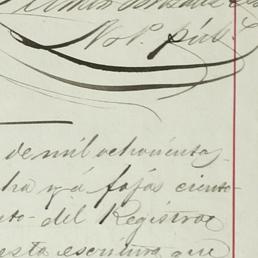 Not. púb.
de mil ochocientos
ha y á fojas ciento
to del Registro
esta escritura que